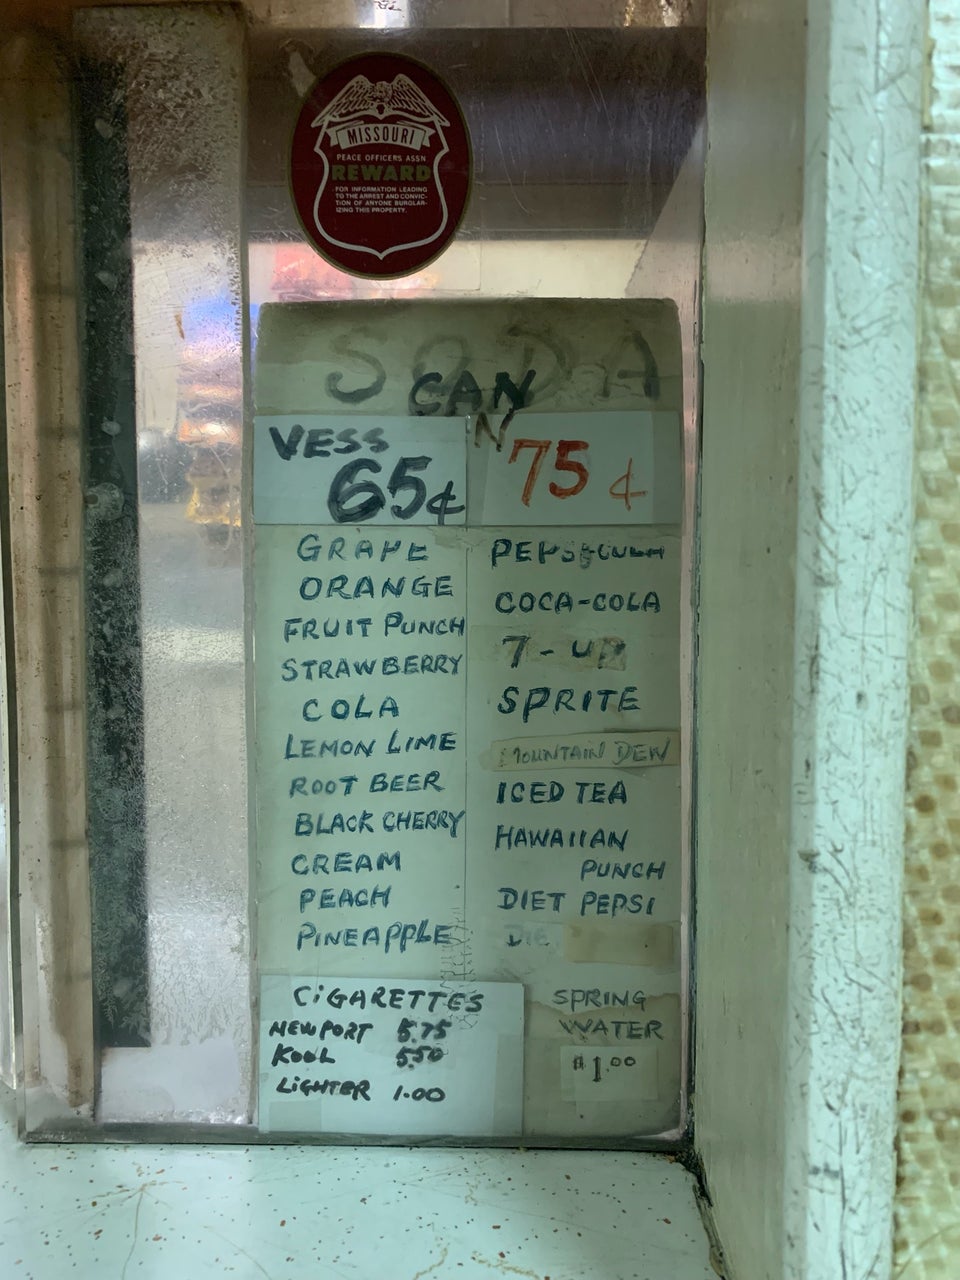 MISSOURI
PEACE OFFICERS ASSN
REWARD
FOR INFORMATION LEADING
TO THE ARREST AND CONVIC-
TION OF ANYONE BURGLAR-
IZING THIS PROPERTY.
SODA
CAN
VESS
65¢
GRAPE
ORANGE
FRUIT PUNCH
STRAWBERRY
COLA
LEMON LIME
ROOT BEER
BLACK CHERRY
CREAM
PEACH
PINEAPPLE
75¢
PEPSI-COLA
COCA-COLA
7-UP
SPRITE
MOUNTAIN DEW
ICED TEA
HAWAIIAN
PUNCH
DIET PEPSI
DIE
CIGARETTES
NEWPORT 5.75
KOOL 5.50
LIGHTER 1.00
SPRING
WATER
$1.00